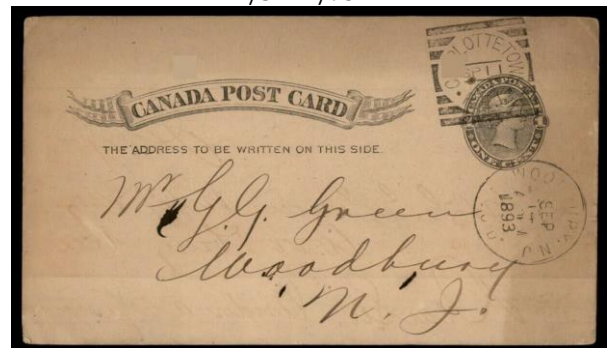 CANADA POST CARD
THE ADDRESS TO BE WRITTEN ON THIS SIDE.
Mr G. G. Green
Woodbury
N. J.
CANADA POST
SEP
1893
N.J.